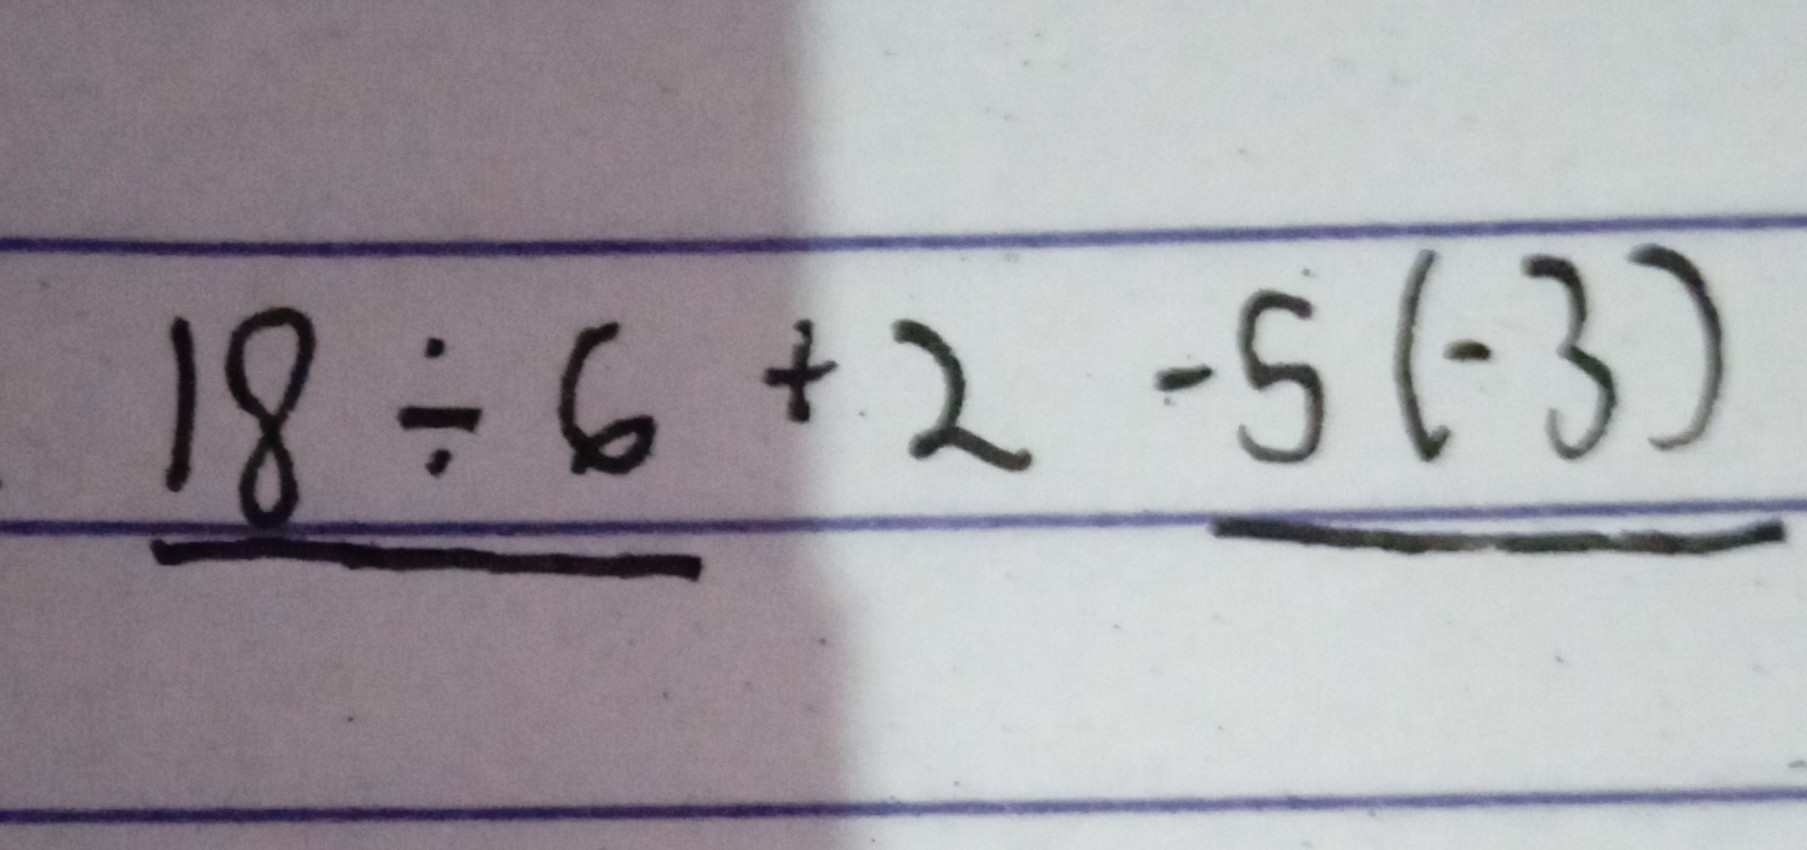 18 ÷ 6 + 2 - 5 (-3)